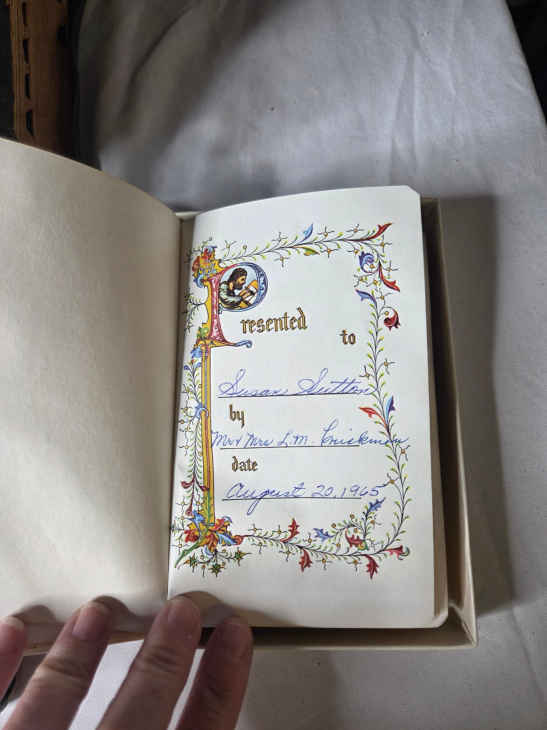 Presented
to
Susan Sutton
by
Mr & Mrs L.M. Crickmon
date
August 20, 1965